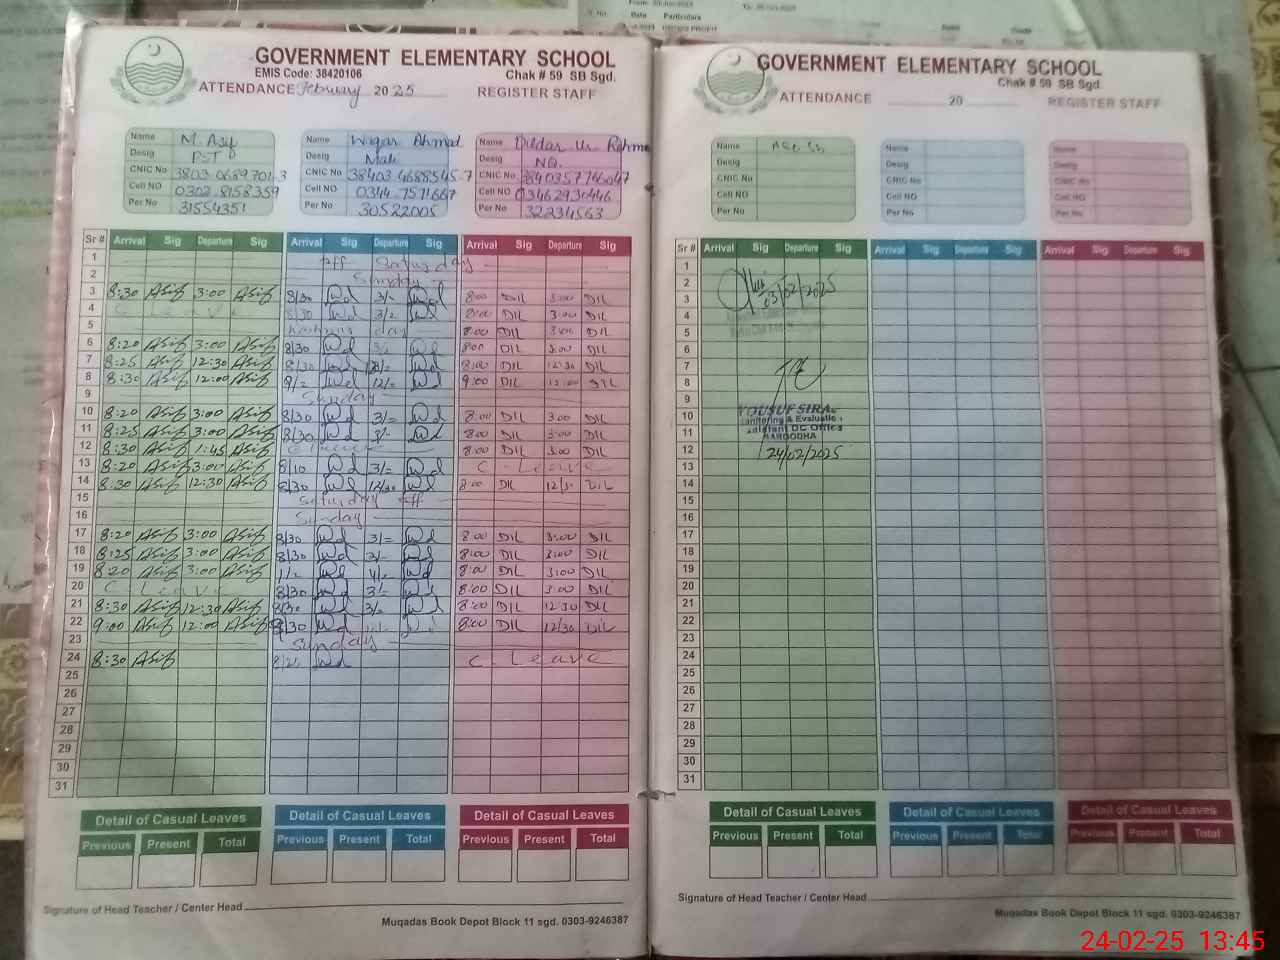 GOVERNMENT ELEMENTARY SCHOOL
EMIS Code: 38420106
Chak # 59 SB Sgd.
ATTENDANCE February 2025 REGISTER STAFF
Name M. Asif
Desig PST
CNIC No
Cell NO 0302-8158359
Per No 31554351
Name Waqar Ahmad
Desig Mali
CNIC No 38403 4688545-7
Cell NO 0344-7571667
Per No 30522005
Name Dildar Ur Rehman
Desig NQ.
CNIC No
Cell NO 03462930446
Per No 32234563
Sr # Arrival Sig Departure Sig Arrival Sig Departure Sig Arrival Sig Departure Sig
1 off Saturday
2 Sunday
3 8:30 Asif 3:00 Asif 8/30 Wd 3/- Wd 8:00 DIL 3:00 DIL
4 C Leave 8/30 Wd 3/2 Wd 8:00 DIL 3:00 DIL
5 Kashmir day 8:00 DIL 3:00 DIL
6 8:20 Asif 3:00 Asif 8/30 Wd 3/- Wd 8:00 DIL 3:00 DIL
7 8:25 Asif 12:30 Asif 8/30 Wd Wd 8:00 DIL 12:30 DIL
8 8:30 Asif 12:00 Asif 9/2 Wd 12/= Wd 9:00 DIL 12:00 DIL
9 Sunday
10 8:20 Asif 3:00 Asif 8/30 Wd 3/= Wd 8:00 DIL 3:00 DIL
11 8:25 Asif 3:00 Asif 8/30 Wd 3/- Wd 8:00 DIL 3:00 DIL
12 8:30 Asif 1:45 Asif 8:00 DIL 3:00 DIL
13 8:20 Asif 3:00 Asif 8/10 Wd 3/= Wd C - Leave
14 8:30 Asif 12:30 Asif 8/30 Wd 12/30 Wd 8:00 DIL 12/30 DIL
15 Saturday off
16 Sunday
17 8:20 Asif 3:00 Asif 8/30 Wd 3/= Wd 8:00 DIL 3:00 DIL
18 8:25 Asif 3:00 Asif 8/30 Wd 3/- Wd 8:00 DIL 3:00 DIL
19 8:20 Asif 3:00 Asif Wd Wd 8:00 DIL 3:00 DIL
20 C Leave 8/30 Wd 3/- Wd 8:00 DIL 3:00 DIL
21 8:30 Asif 12:30 Asif 8/30 Wd 3/- Wd 8:00 DIL 12:30 DIL
22 9:00 Asif 12:00 Asif 8/30 Wd 8:00 DIL 12/30 DIL
23 Sunday
24 8:30 Asif Wd C. Leave
25
26
27
28
29
30
31
Detail of Casual Leaves Detail of Casual Leaves Detail of Casual Leaves
Previous Present Total Previous Present Total Previous Present Total
Signature of Head Teacher / Center Head
Muqadas Book Depot Block 11 sgd. 0303-9246387
GOVERNMENT ELEMENTARY SCHOOL
Chak # 59 SB Sgd.
ATTENDANCE 20 REGISTER STAFF
Name Name Name
Desig Desig Desig
CNIC No CNIC No CNIC No
Cell NO Cell NO Cell NO
Per No Per No Per No
Sr # Arrival Sig Departure Sig Arrival Sig Departure Sig Arrival Sig Departure Sig
1
2
3 03/02/2025
4
5
6
7
8
9
10 YOUSUF SIRA
11
SARGODHA
12 24/02/2025
13
14
15
16
17
18
19
20
21
22
23
24
25
26
27
28
29
30
31
Detail of Casual Leaves Detail of Casual Leaves Detail of Casual Leaves
Previous Present Total Previous Present Total Previous Present Total
Signature of Head Teacher / Center Head
Muqadas Book Depot Block 11 sgd. 0303-9246387
24-02-25 13:45